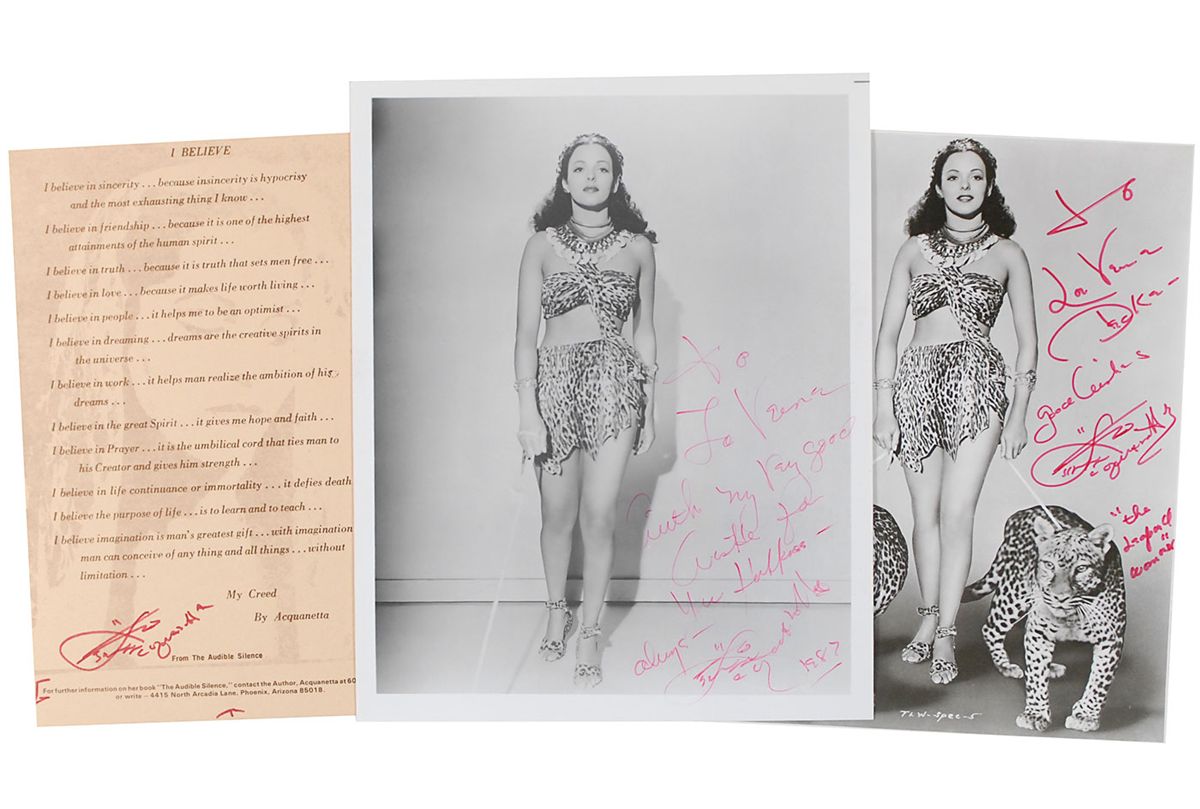 I BELIEVE
I believe in sincerity . . . because insincerity is hypocrisy
and the most exhausting thing I know . . .
I believe in friendship . . . because it is one of the highest
attainments of the human spirit . . .
I believe in truth . . . because it is truth that sets men free . . .
I believe in love . . . because it makes life worth living . . .
I believe in people . . . it helps me to be an optimist . . .
I believe in dreaming . . . dreams are the creative spirits in
the universe . . .
I believe in work . . . it helps man realize the ambition of his
dreams . . .
I believe in the great Spirit . . . it gives me hope and faith . . .
I believe in Prayer . . . it is the umbilical cord that ties man to
his Creator and gives him strength . . .
I believe in life continuance or immortality . . . it defies death
I believe the purpose of life . . . is to learn and to teach . . .
I believe imagination is man's greatest gift . . . with imagination
man can conceive of any thing and all things . . . without
limitation . . .
My Creed
By Acquanetta
Acquanetta
From The Audible Silence
For further information on her book "The Audible Silence," contact the Author, Acquanetta at 60
or write – 4415 North Arcadia Lane, Phoenix, Arizona 85018.
To
La Verna
with my very good
wishes for
Your Happiness –
always –
Acquanetta
1987
To
La Verna
good wishes
Acquanetta
"the
Leopard
woman"
TLW-Spec-5